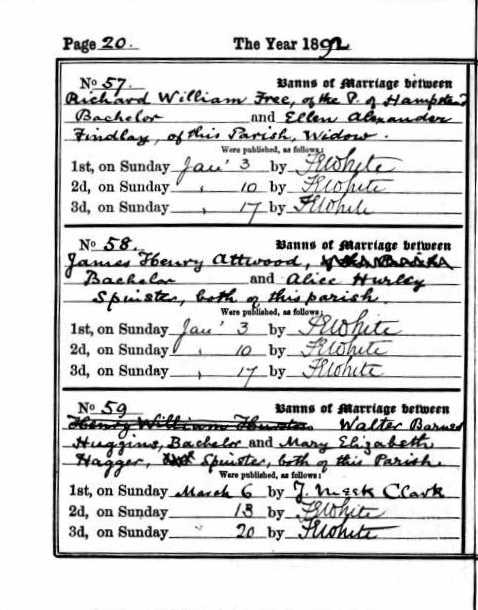 Page 20. The Year 1892
No 57. Banns of Marriage between
Richard William Free, of the P. of Hampstead
Bachelor and Ellen Alexander
Findlay, of this Parish, Widow.
Were published, as follows:
1st, on Sunday Jan' 3 by F K White
2d, on Sunday " 10 by F K White
3d, on Sunday " 17 by F K White
No 58. Banns of Marriage between
James Henry Attwood,
Bachelor and Alice Hurley
Spinster, both of this parish.
Were published, as follows:
1st, on Sunday Jan' 3 by F K White
2d, on Sunday " 10 by F K White
3d, on Sunday " 17 by F K White
No 59 Banns of Marriage between
Henry William Walter Barnes
Huggins, Bachelor and Mary Elizabeth
Hagger, Spinster, both of this Parish.
Were published, as follows:
1st, on Sunday March 6 by J. Meek Clark
2d, on Sunday " 13 by F K White
3d, on Sunday " 20 by F K White